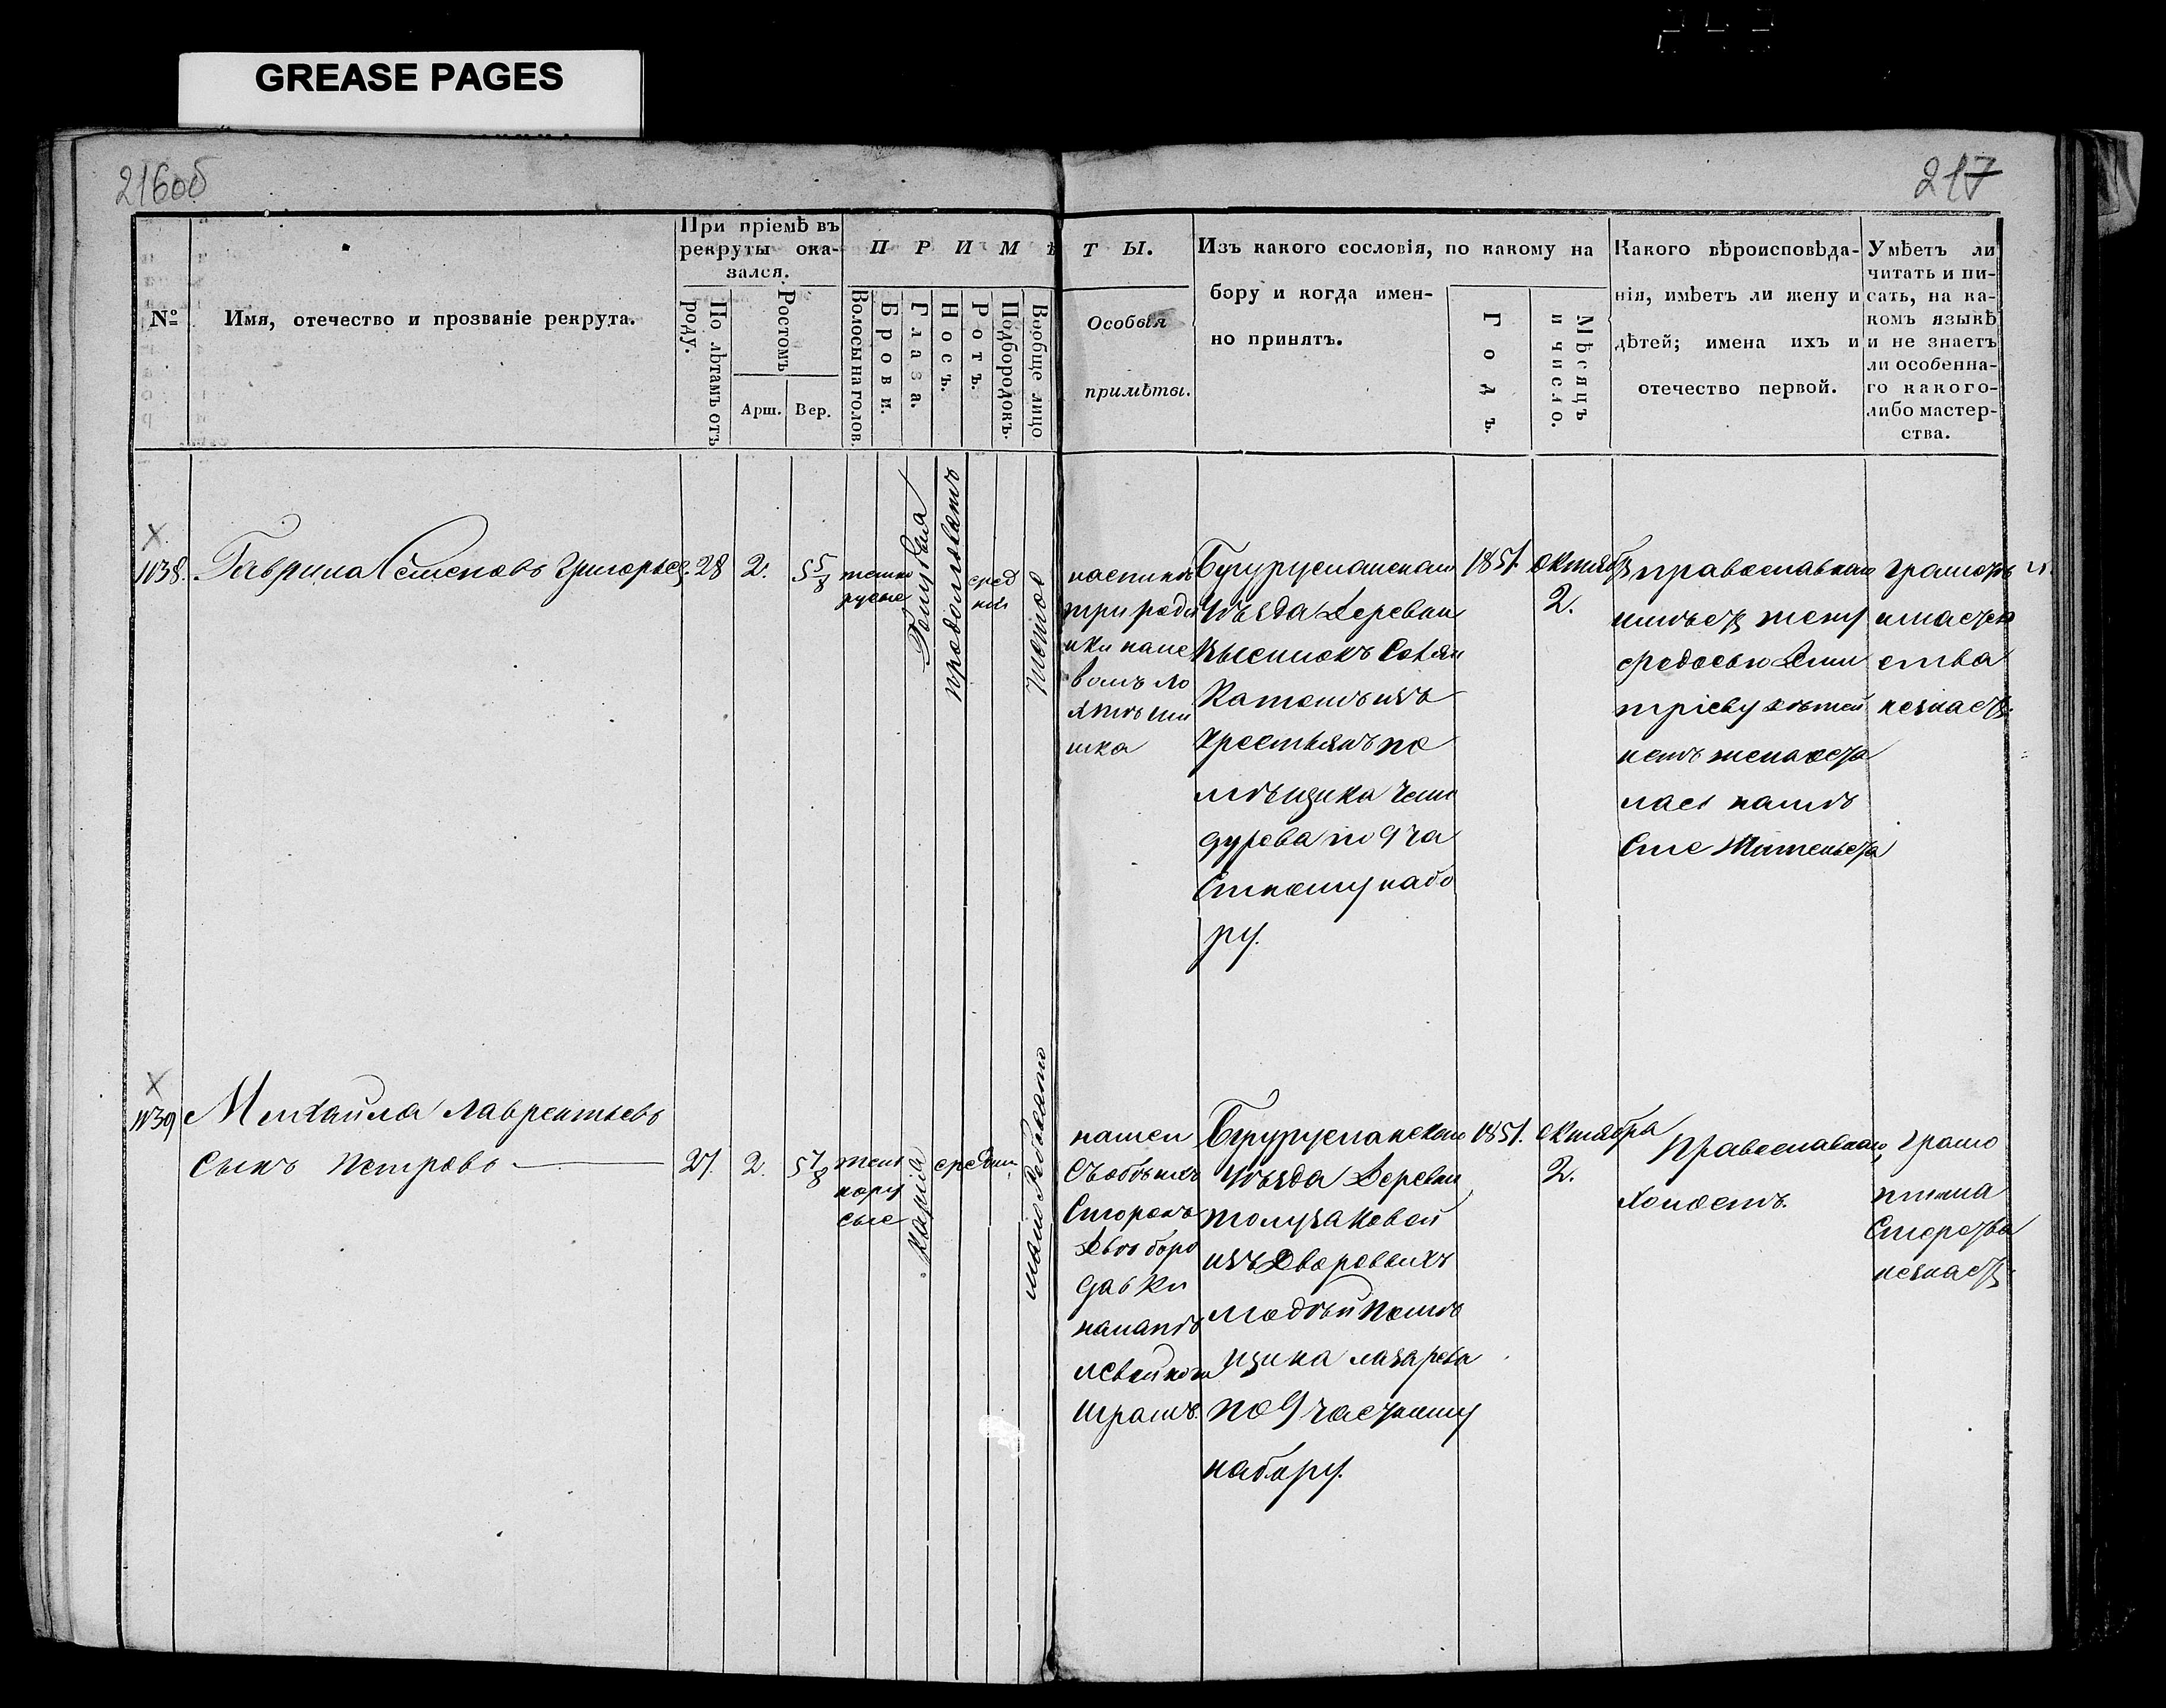 GREASE PAGES
216об
217
№
Имя, отечество и прозваніе рекрута.
При пріемѣ въ
рекруты ока-
зался.
По лѣтамъ отъ
роду.
Ростомъ
Арш.
Вер.
ПРИМѢТЫ.
Волосы на голов.
Брови.
Глаза.
Носъ.
Ротъ.
Подбородокъ.
Вообще лицо
Особыя
примѣты.
Изъ какого сословія, по какому на
бору и когда имен-
но принятъ.
Годъ.
Мѣсяцъ
и число.
Какого вѣроисповѣда-
нія, имѣетъ ли жену и
дѣтей; имена ихъ и
отечество первой.
Умѣетъ ли
читать и пи-
сать, на ка-
комъ языкѣ
и не знаетъ
ли особенна-
го какого-
либо мастер-
ства.
1138.
Гаврила Семеновъ Григорьев.
28
2.
5 5/8
темно
русые
Голубыя
продолговатъ
сред
ній
чистое
на спинѣ
три роди
нки на ле
вомъ ло
Бугурусланскаго
уѣзда Деревни
изъ
крестьянъ по
мѣщика Чемо
дурова по 9 ча
стному набо
ру.
1851.
Октября
2.
православнаго
имѣетъ жену
Федосью Дми
тріеву дѣтей
нетъ жена оста
лась на мѣ
сте жительства
грамотѣ и
мастер
ства
незнаетъ.
1139
Михайла Лаврентьевъ
сынъ Петровъ
27.
2.
5 1/8
тем
нору
сые
Карія
средни
мало Рябовато
на шеи
съ обѣихъ
Сторонъ
две боро
давки
левый
шрамъ.
Бугурусланскаго
уѣзда Деревни
Толузаковой
изъ Дворовыхъ
людей Помѣ
щика Лазарева
по 9 частному
набору.
1851.
Октября
2.
Православнаго
Холостъ.
Грамо
незнаетъ.